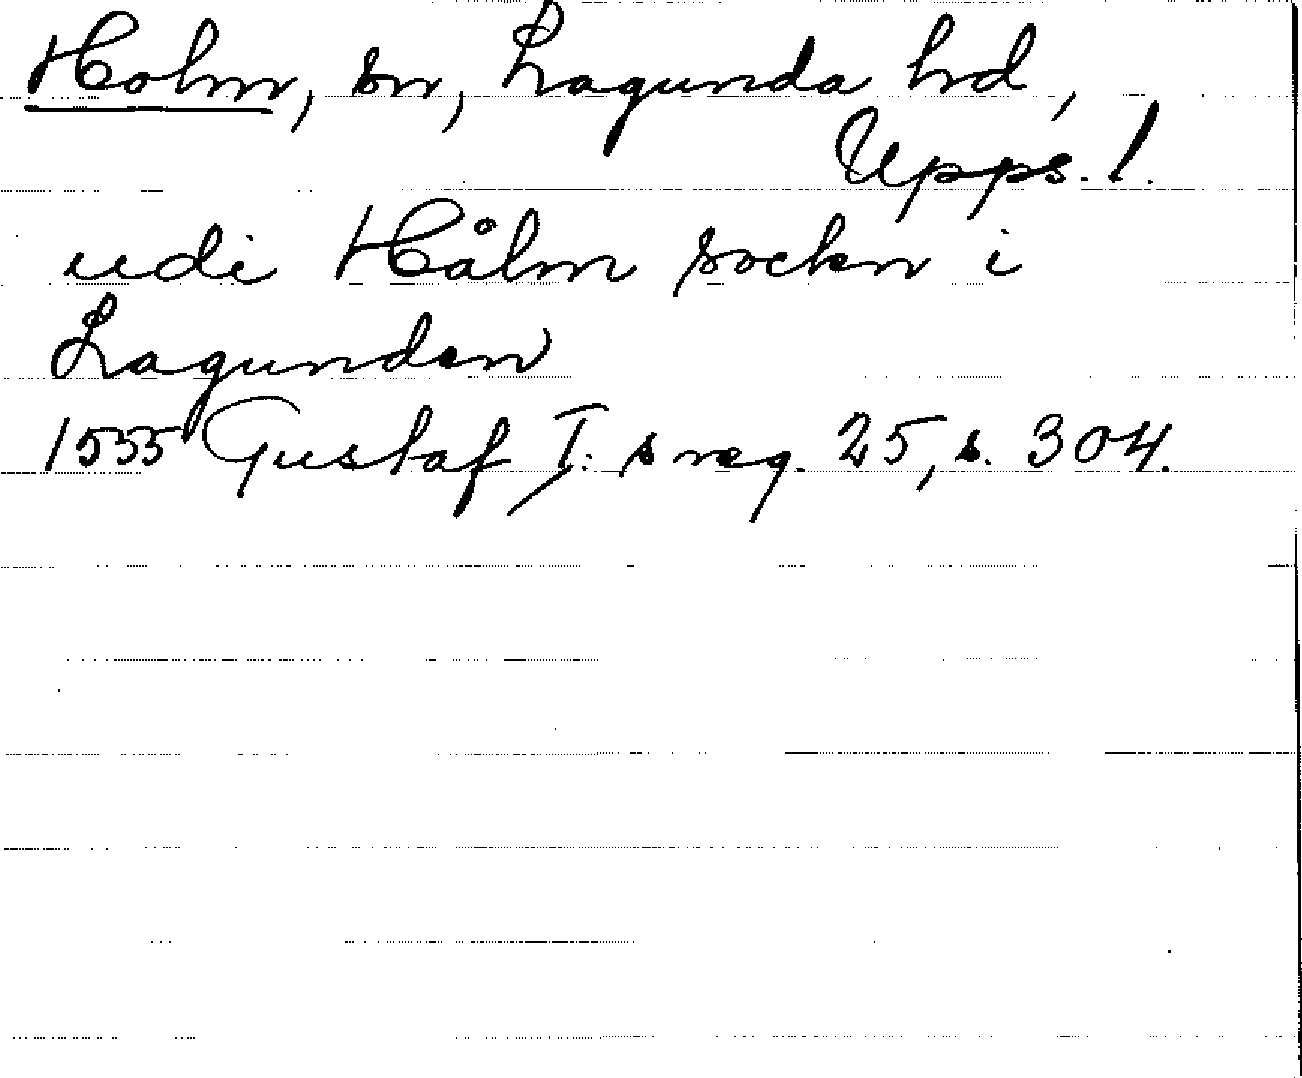 Holm, sn, Lagunda hd,
Upps. l.
udi Hålm sockn i
Lagunden
1555 Gustaf I:s reg. 25, s. 304.